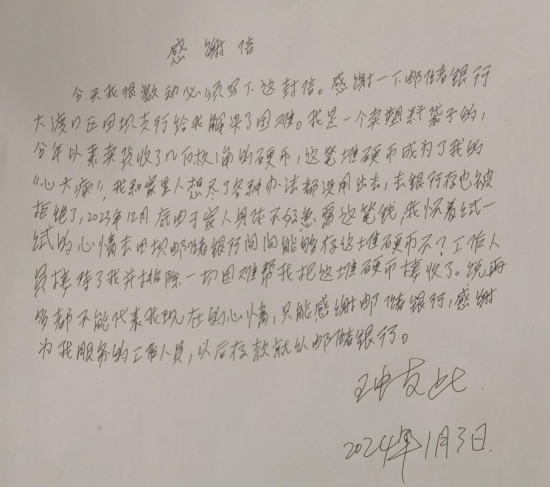 感谢信
今天我很激动必须写下这封信。感谢一下邮储银行
大渡口区田坝支行给我解决了困难。我是一个卖塑料袋子的,
今年以来卖货收了几百枚1角的硬币,这笔堆硬币成为了我的
“心头病”,我和家里人想尽了各种办法都没用出去,去银行存也被
拒绝了,2023年12月底由于家人身体不好急需这笔钱,我怀着试一
试的心情去田坝邮储银行问问能够存这堆硬币不?工作人
员接待了我并排除一切困难帮我把这堆硬币接收了。说再
多都不能代表我现在的心情,只能感谢邮储银行,感谢
为我服务的工作人员,以后存款就认邮储银行。
2024年1月3日.